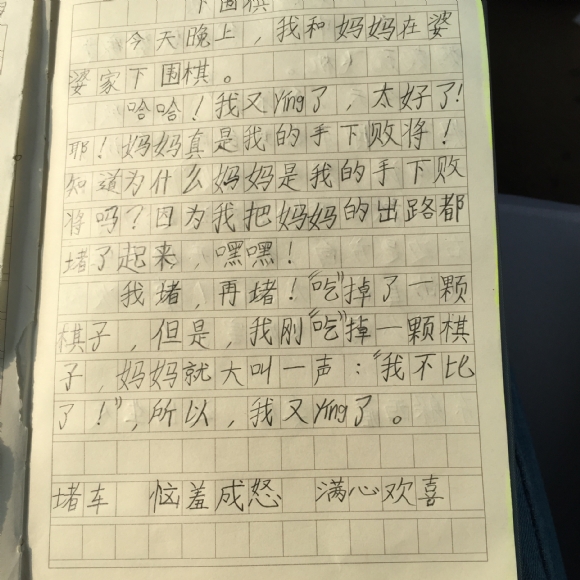 下围棋
今天晚上，我和妈妈在婆
婆家下围棋。
哈哈！我又Ying了，太好了！
耶！妈妈真是我的手下败将！
知道为什么妈妈是我的手下败
将吗？因为我把妈妈的出路都
堵了起来，嘿嘿！
我堵，再堵！“吃”掉了一颗
棋子，但是，我刚“吃”掉一颗棋
子，妈妈就大叫一声：“我不比
了！”，所以，我又Ying了。
堵车 恼羞成怒 满心欢喜